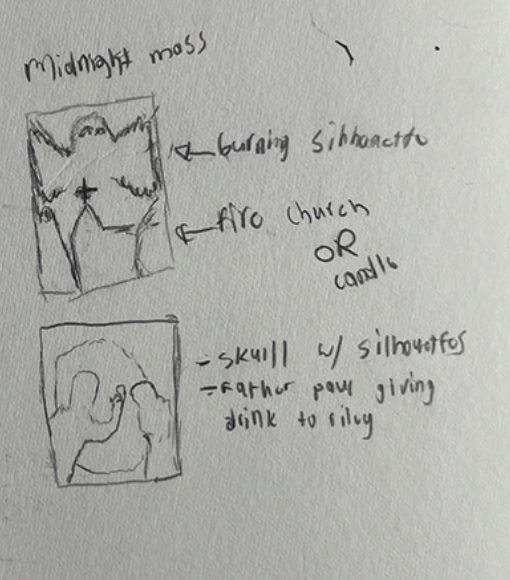 Midnight mass
burning silhouette
fire church
OR
candle
- skull w/ silhouettes
- Father paul giving
drink to riley